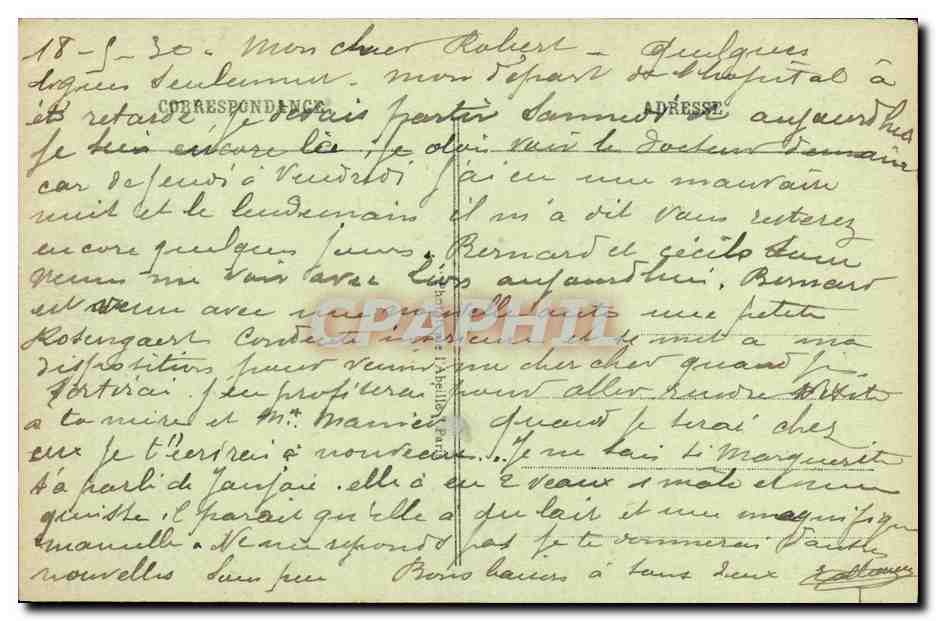 18-5-30. Mon cher Robert - Quelques
lignes seulement - mon départ de l'hopital à
CORRESPONDANCE ADRESSE
été retardé, je devais partir Samedi et aujourd'hui
je suis encore là, je dois voir le docteur demain
car de jeudi à Vendredi j'ai eu une mauvaise
nuit et le lendemain il m'a dit vous resterez
encore quelques jours. Bernard et Cécile sont
venus me voir avec aujourd'hui. Bernard
est venu avec une nouvelle auto une petite
Rosengaert Conduite intérieure et se met à ma
disposition pour venir me chercher quand je
sortirai. J'en profiterai pour aller rendre visite
a ta mère et Mr quand je serai chez
eux je t'écrirai à nouveau. Je ne sais si Marguerite
t'a parlé de elle à eu 2 veaux 1 male et une
génisse. il parait qu'elle a du lait et une magnifique
mamelle. Ne me reponds pas je te donnerai d'autres
nouvelles sous peu Bons baisers à tous deux
Photo l'Abeille, Paris
CPAPHIL